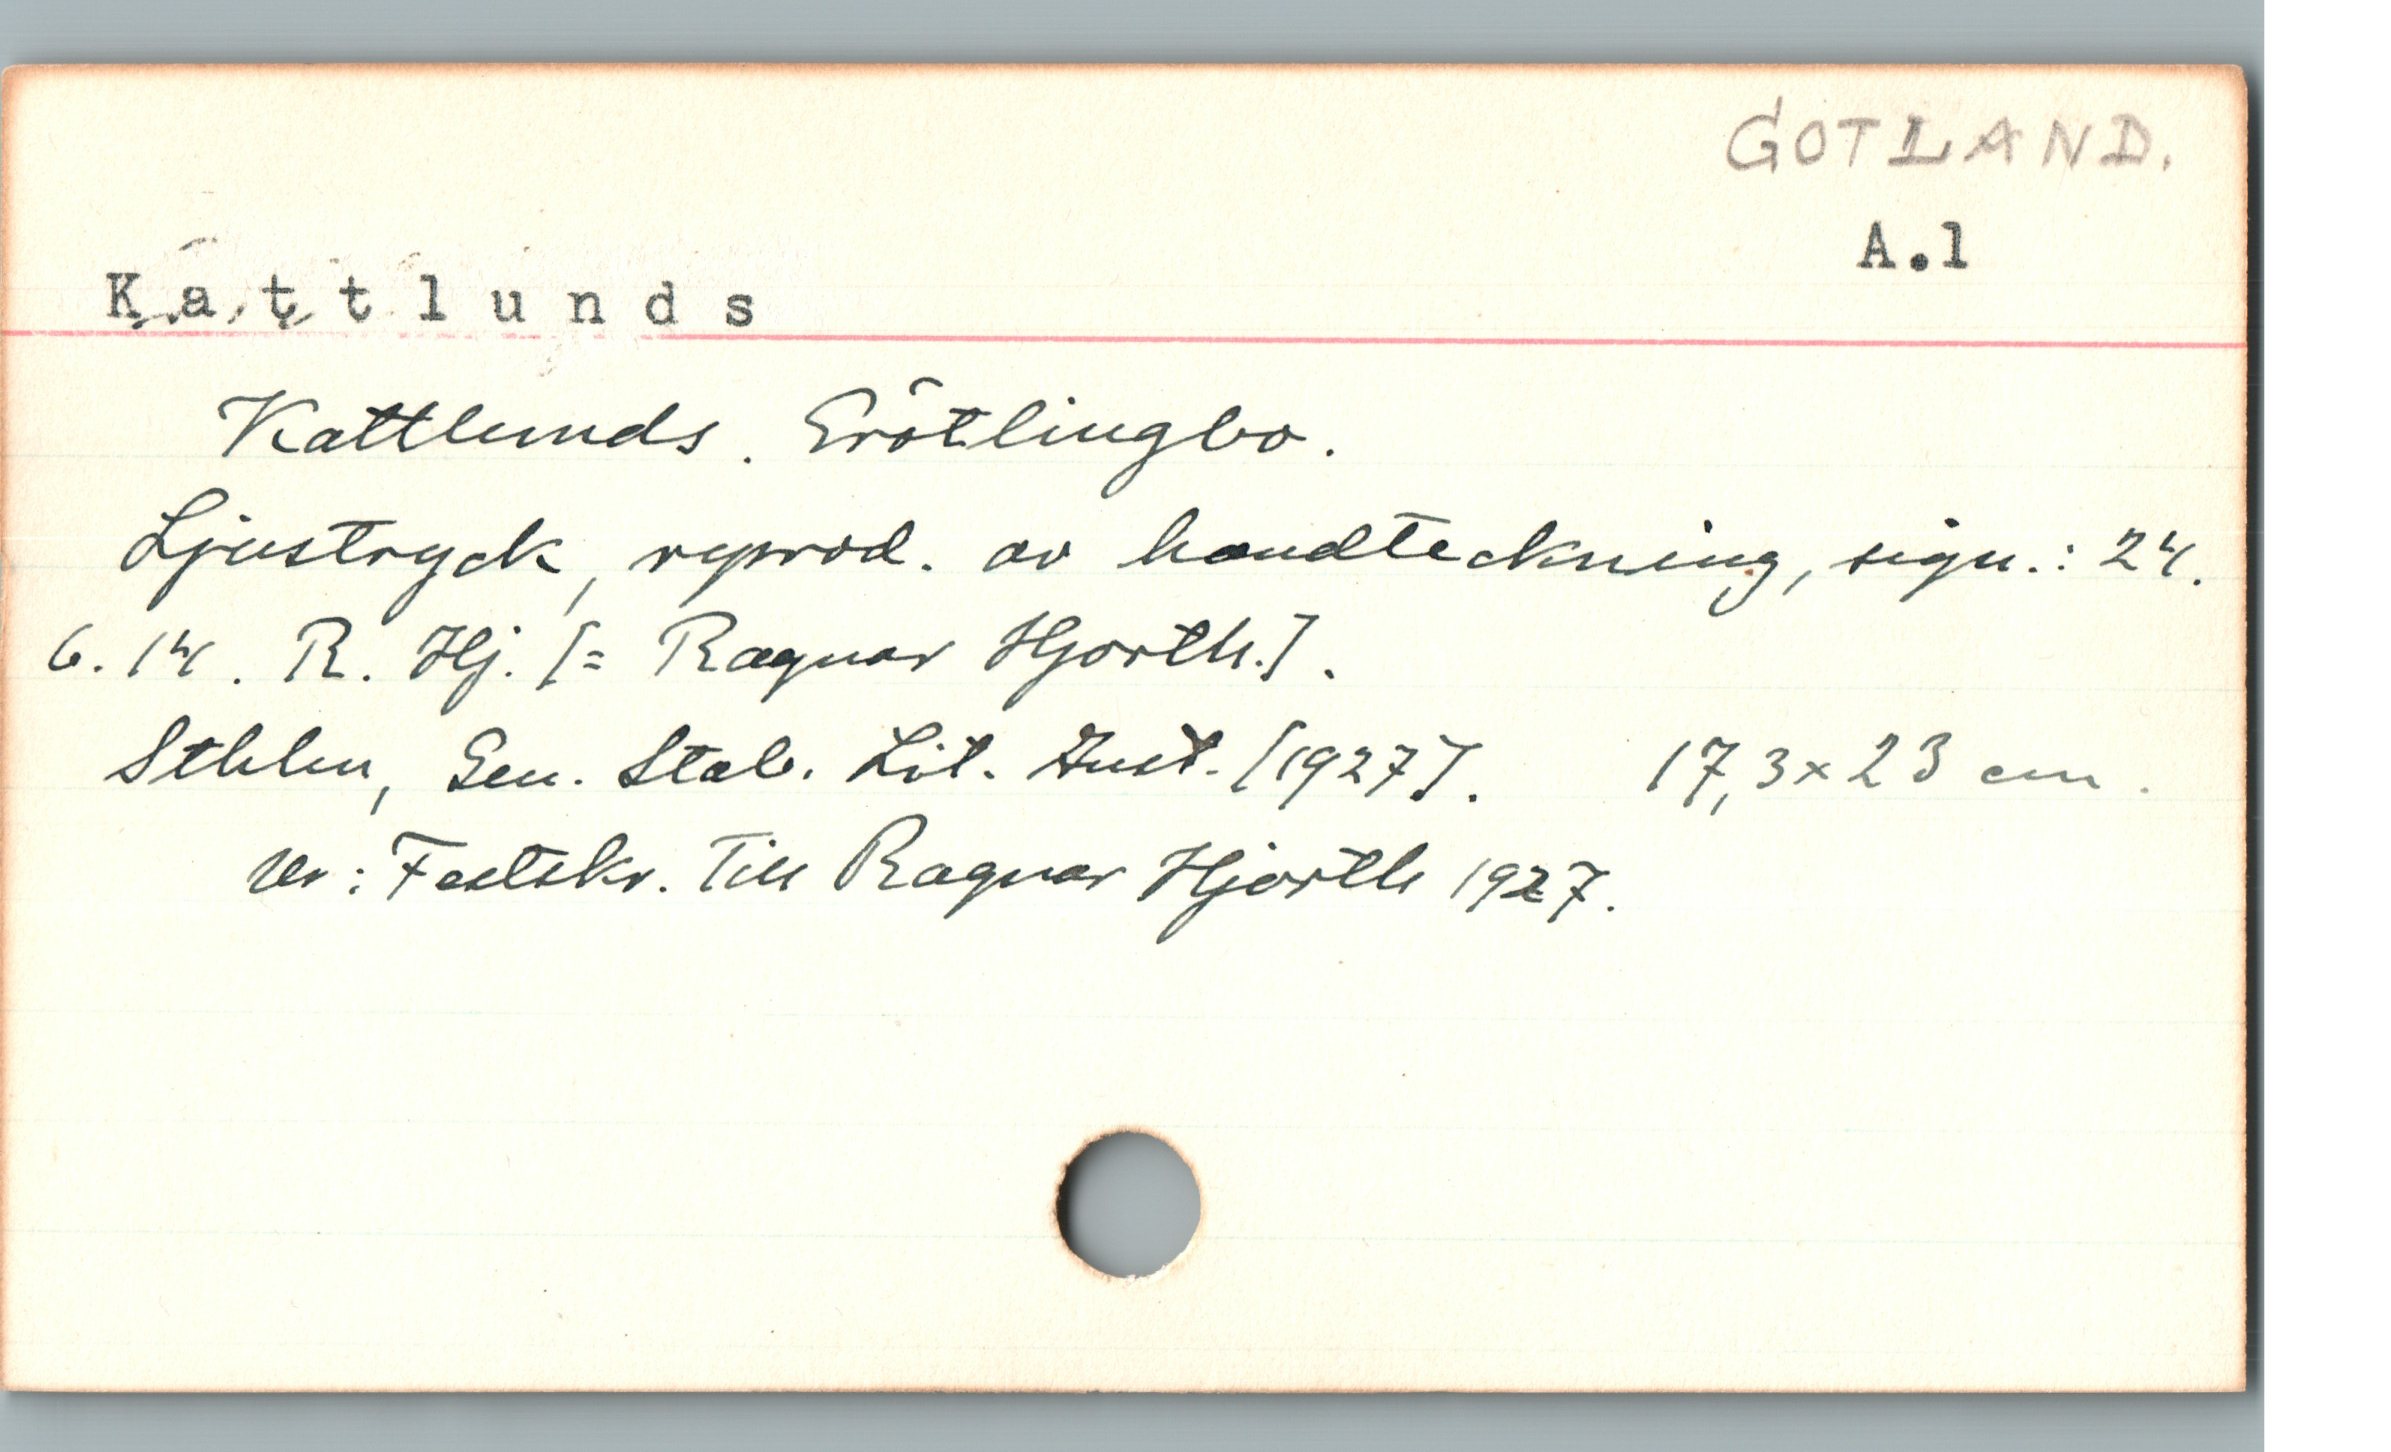 GOTLAND.
A.1
Kattlunds
Kattlunds. Grötlingbo.
Ljustryck, reprod. av handteckning, sign.: 24.
6. 14. R. Hj. [= Ragnar Hjorth.].
Sthlm, Gen. Stab. Lit. Anst. [1927]. 17,3 x 23 cm.
Ur: Festskr. till Ragnar Hjorth 1927.